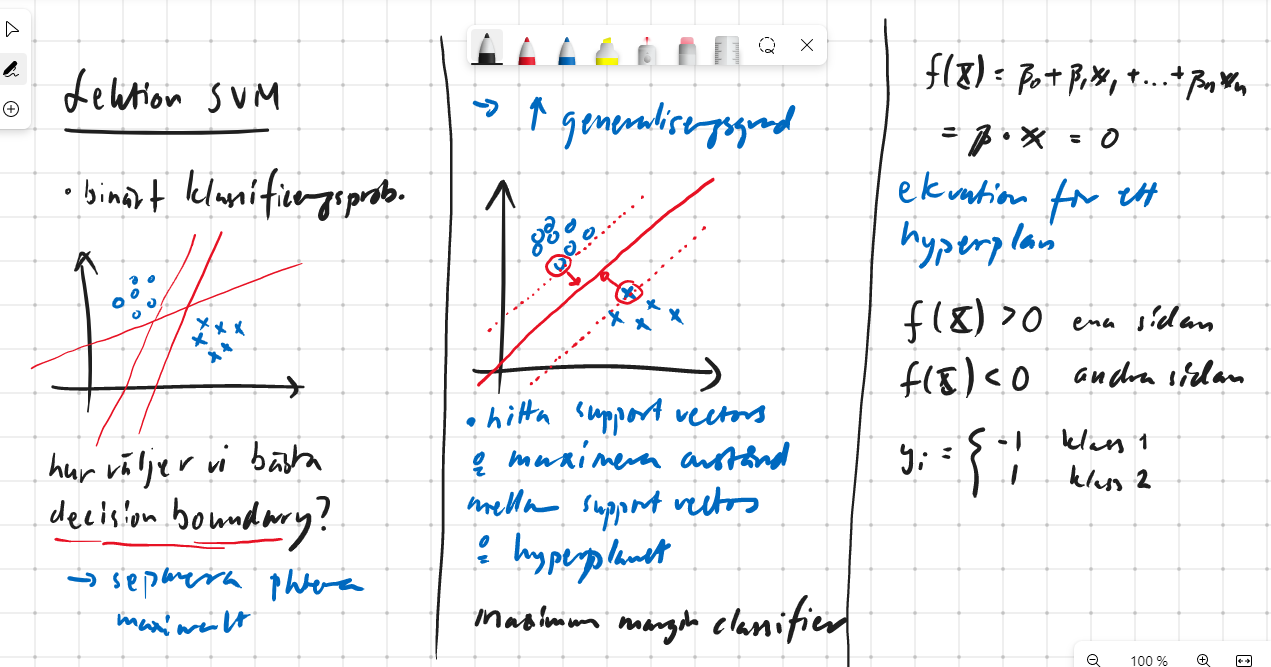 Lektion SVM
• binärt klassificeringsprob.
hur väljer vi bästa
decision boundary?
→ separera phtera
maximalt
→ ↑ generaliseringsgrad
• hitta support vectors
& maximera avstånd
mellan support vectors
& hyperplanet
maximum margin classifier
f(X) = β₀ + β₁x₁ + ... + βₙxₙ
= β • x = 0
ekvation för ett
hyperplan
f(X) > 0 ena sidan
f(X) < 0 andra sidan
yᵢ = { -1 klass 1
1 klass 2
100 %